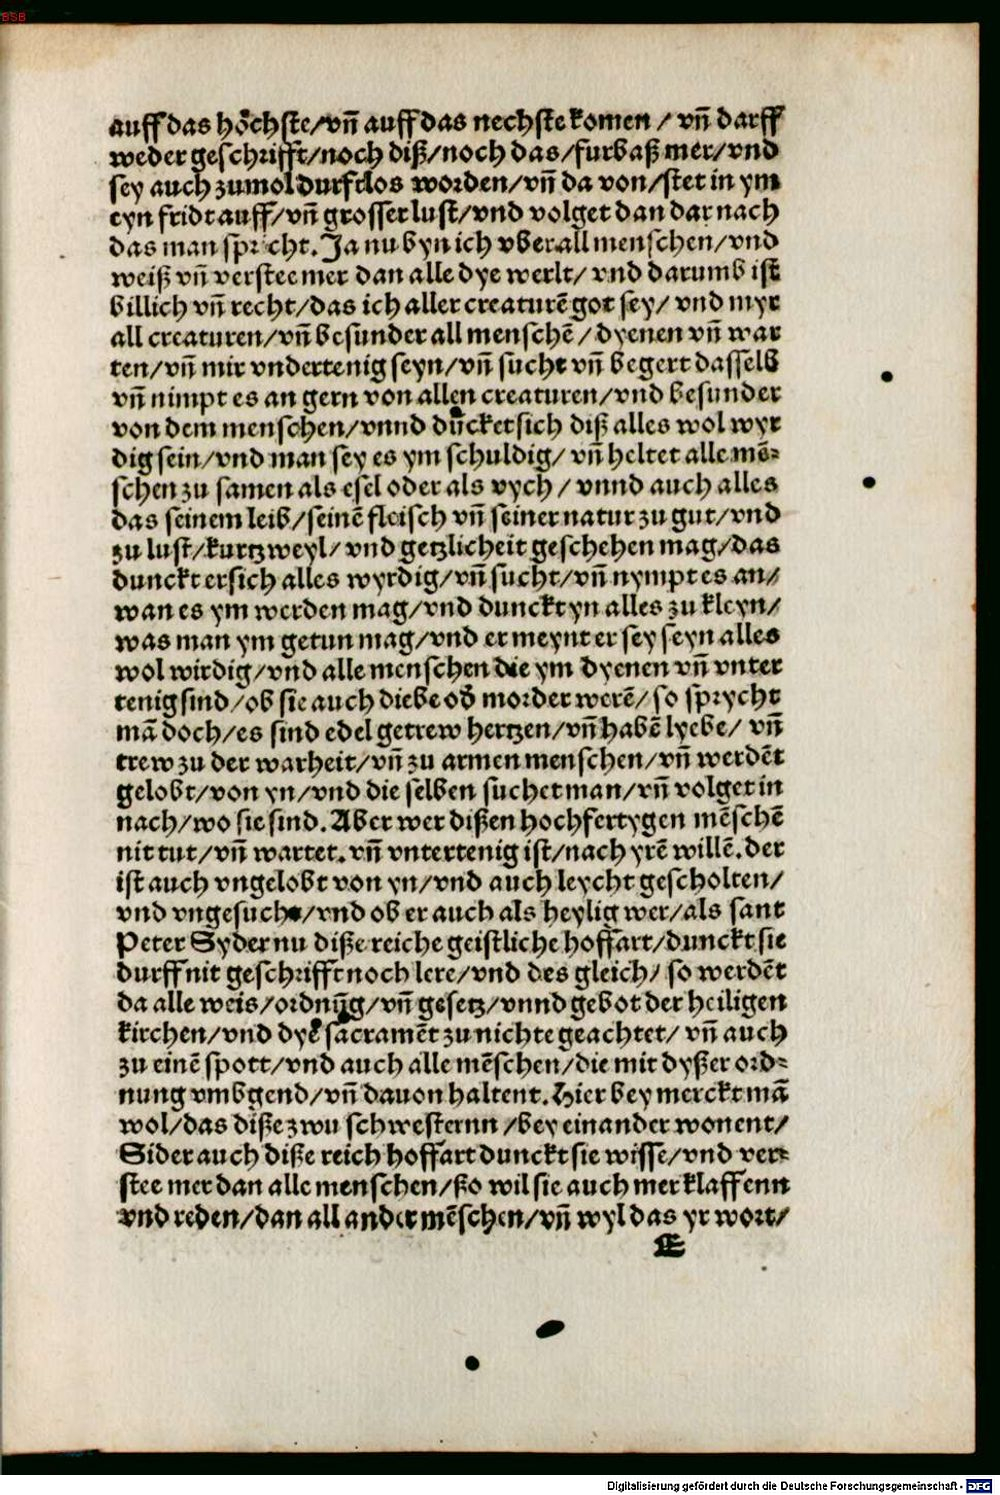 BSB
auff das hőchste/vn̄ auff das nechste komen / vn̄ darff
weder geschrifft/noch diß/noch das/furbaß mer/vnd
sey auch zumol durftlos worden/vn̄ da von/stet in ym
eyn fridt auff/vn̄ grosser lust/vnd volget dan dar nach
das man spricht. Ja nu byn ich vber all menschen/vnd
weiß vn̄ verstee mer dan alle dye werlt/ vnd darumb ist
billich vn̄ recht/das ich aller creaturē got sey/ vnd myr
all creaturen/vn̄ besunder all menschē / dyenen vn̄ war
ten/vn̄ mir vndertenig seyn/vn̄ sucht vn̄ begert dasselb
vn̄ nimpt es an gern von allen creaturen/vnd besunder
von dem menschen/vnnd du̇cket sich diß alles wol wyr
dig sein/vnd man sey es ym schuldig/ vn̄ heltet alle mē⸗
schen zu samen als esel oder als vych / vnnd auch alles
das seinem leib/seinē fleisch vn̄ seiner natur zu gut/vnd
zu lust/kurtzweyl/ vnd getzlicheit geschehen mag/das
dunckt er sich alles wyrdig/vn̄ sucht/vn̄ nympt es an/
wan es ym werden mag/vnd dunckt yn alles zu kleyn/
was man ym getun mag/vnd er meynt er sey seyn alles
wol wirdig/vnd alle menschen die ym dyenen vn̄ vnter
tenig sind/ob sie auch diebe od̕ morder werē/ so sprycht
mā doch/es sind edel getrew hertzen/vn̄ habē lyebe/ vn̄
trew zu der warheit/vn̄ zu armen menschen/vn̄ werdēt
gelobt/von yn/vnd die selben suchet man/vn̄ volget in
nach/wo sie sind. Aber wer dißen hochfertygen mēschē
nit tut/vn̄ wartet. vn̄ vntertenig ist/nach yrē willē. der
ist auch vngelobt von yn/vnd auch leycht gescholten/
vnd vngesucht/vnd ob er auch als heylig wer/als sant
Peter Syder nu diße reiche geistliche hoffart/dunckt sie
durff nit geschrifft noch lere/vnd des gleich/ so werdēt
da alle weis/ordnūg/vn̄ gesetz/vnnd gebot der heiligen
kirchen/vnd dye sacramēt zu nichte geachtet/ vn̄ auch
zu einē spott/vnd auch alle mēschen/die mit dyßer ord⸗
nung vmbgend/vn̄ dauon haltent. Hier bey merckt mā
wol/das diße zwu schwesternn /bey einander wonent/
Sider auch diße reich hoffart dunckt sie wisse/vnd ver⸗
stee mer dan alle menschen/ßo wil sie auch mer klaffenn
vnd reden/dan all ander mēschen/vn̄ wyl das yr wort/
E
Digitalisierung gefördert durch die Deutsche Forschungsgemeinschaft - DFG